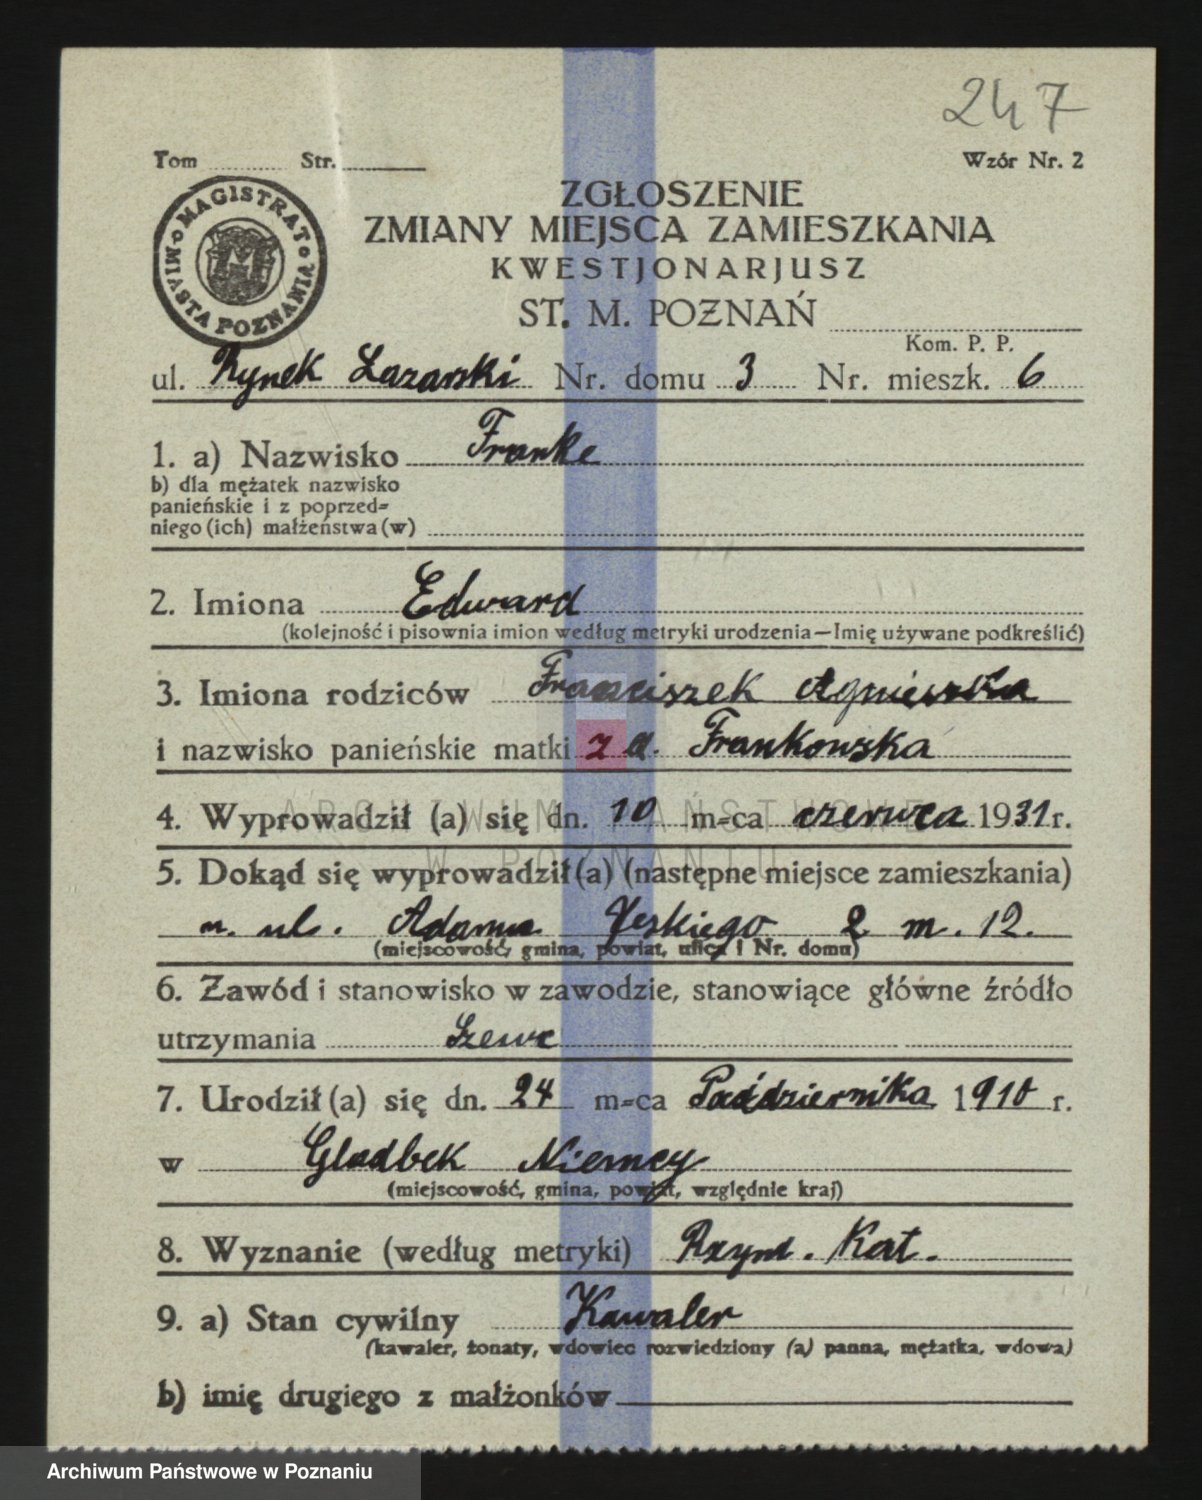 247
Tom Str. Wzór Nr. 2
MAGISTRAT MIASTA POZNANIA
ZGŁOSZENIE
ZMIANY MIEJSCA ZAMIESZKANIA
KWESTJONARJUSZ
ST. M. POZNAŃ
Kom. P. P.
ul. Rynek Łazarski Nr. domu 3 Nr. mieszk. 6
1. a) Nazwisko Franke
b) dla mężatek nazwisko
panieńskie i z poprzed=
niego (ich) małżeństwa (w)
2. Imiona Edward
(kolejność i pisownia imion według metryki urodzenia—Imię używane podkreślić)
3. Imiona rodziców Franciszek Agnieszka
i nazwisko panieńskie matki z d. Frankowska
ARCHIWUM PAŃSTWOWE
W POZNANIU
4. Wyprowadził (a) się dn. 10 m=ca czerwca 1931 r.
5. Dokąd się wyprowadził (a) (następne miejsce zamieszkania)
ul. Adama 2 m. 12.
(miejscowość, gmina, powiat, ulica i Nr. domu)
6. Zawód i stanowisko w zawodzie, stanowiące główne źródło
utrzymania Szewc
7. Urodził (a) się dn. 24 m=ca Października 1910 r.
w Gladbek Niemcy
(miejscowość, gmina, powiat, względnie kraj)
8. Wyznanie (według metryki) Rzym. Kat.
9. a) Stan cywilny Kawaler
(kawaler, żonaty, wdowiec rozwiedziony (a) panna, mężatka, wdowa)
b) imię drugiego z małżonków
Archiwum Państwowe w Poznaniu